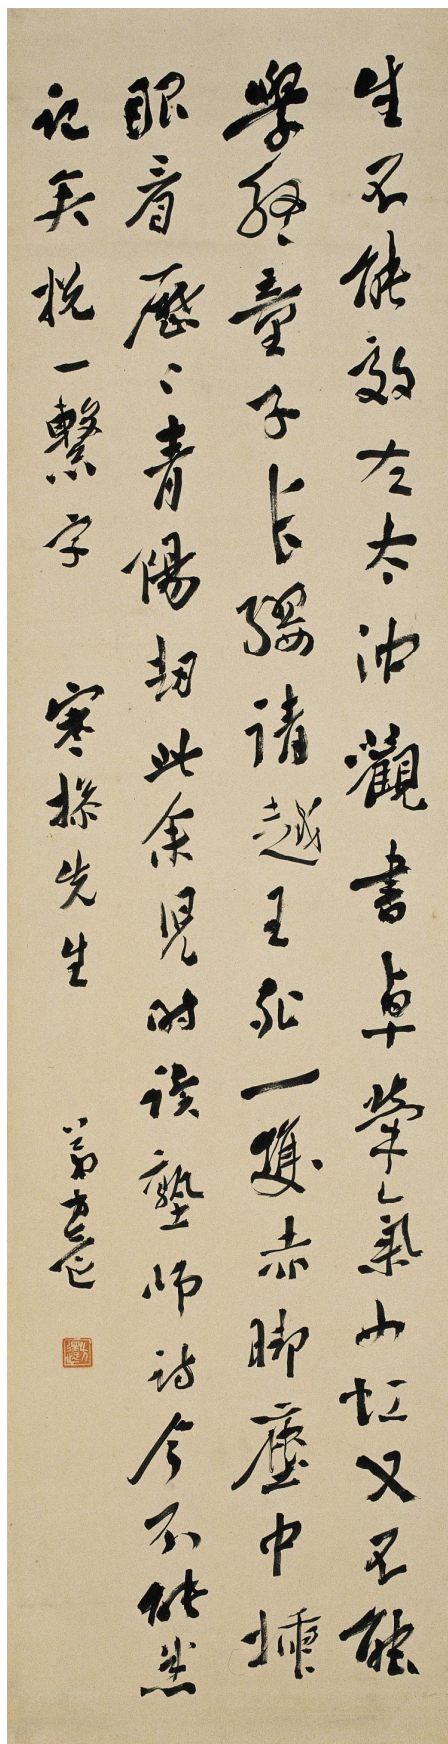 生不能效左太冲觀書卓犖氣如虹又不能
學終童子長纓請越王死一雙赤脚塵中插
眼看歷〻青陽劫此余兒時讀塾師詩今不能悉
記矣挩一繫字 寒操先生
弟方